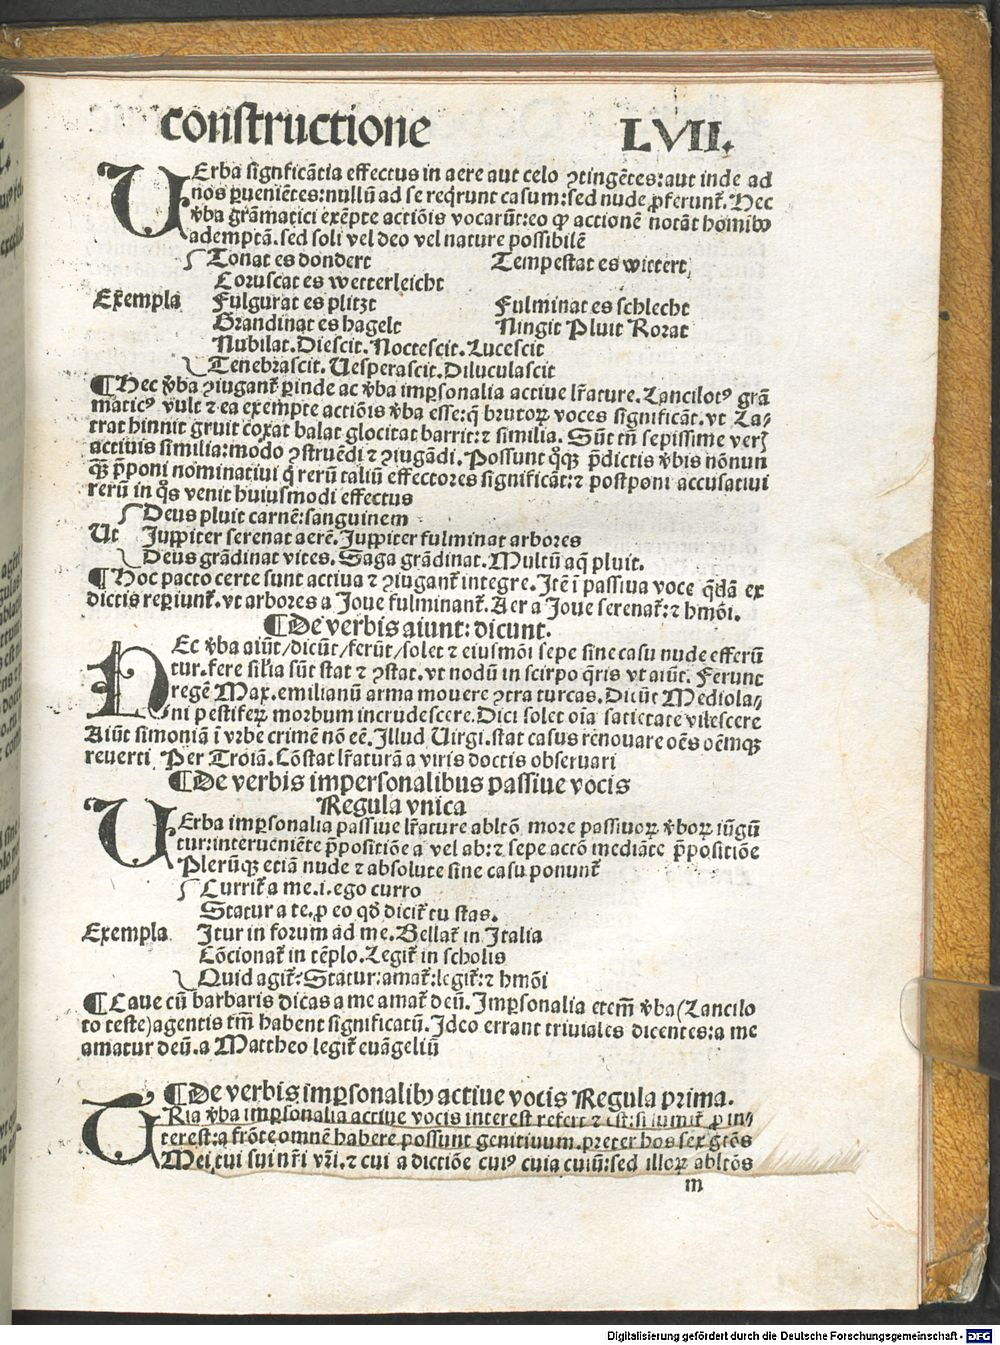 constructione LVII.
UErba signficãtia effectus in aere aut celo ꝯtingẽtes: aut inde ad
nos ꝑueniẽtes: nullũ ad se reqͥrunt casum: sed nude ꝓferunt᷑. Hec
ꝟba grãmatici exẽpte actiõis vocarũt: eo ꝙ actionẽ notãt homibꝰ
ademptã. sed soli vel deo vel nature possibilẽ
Tonat es dondert Tempestat es wittert
Coruscat es wetterleicht
Exempla Fulgurat es plitzt Fulminat es schlecht
Grandinat es hagelt Ningit Pluit Rorat
Nubilat. Diescit. Noctescit. Lucescit
Tenebrascit. Uesperascit. Diluculascit
¶Hec ꝟba ꝯiugant᷑ ꝑinde ac ꝟba imꝑsonalia actiue lr̃ature. Lancilotꝰ grã
maticꝰ vult ⁊ ea exempte actiõis ꝟba esse: q̃ brutoꝝ voces significãt. vt La⸗
trat hinnit gruit coxat balat glocitat barrit: ⁊ similia. Sũt tñ sepissime ver
actiuis similia: modo ꝯstruẽdi ⁊ ꝯiugãdi. Possunt qͦꝗꝫ p̃dictis ꝟbis nõnun
ꝗꝫ p̃poni nominatiui qͥ rerũ taliũ effectores significãt: ⁊ postponi accusatiui
rerũ in qͦs venit huiusmodi effectus
Deus pluit carnẽ: sanguinem
Ut Juppiter serenat aerẽ. Juppiter fulminat arbores
Deus grãdinat vites. Saga grãdinat. Multũ aq̃ pluit.
¶Hoc pacto certe sunt actiua ⁊ ꝯiugant᷑ integre. Jtẽ ĩ passiua voce q̃dã ex
dictis reꝑiunt᷑. vt arbores a Joue fulminant᷑. Aer a Joue serenat᷑: ⁊ hmõi.
¶De verbis aiunt: dicunt.
HEc ꝟba aiũt/dicũt/ferũt/solet ⁊ eiusmõi sepe sine casu nude efferũ
tur. fere sil̃ia sũt stat ⁊ ꝯstat. vt nodũ in scirpo qͥris vt aiũt. Ferunt
regẽ Max. emilianũ arma mouere ꝯtra turcas. Dicũt Mediola⸗
ni pestifeꝝ morbum incrudescere. Dici solet oĩa satietate vilescere
Aiũt simoniã ĩ vrbe crimẽ nõ eẽ. Jllud Uirgi. stat casus renouare oẽs oẽmqꝫ
reuerti Per Troiã. Cõstat lr̃aturã a viris doctis obseruari
¶De verbis impersonalibus passiue vocis
Regula vnica
UErba imꝑsonalia passiue lr̃ature abltõ more passiuoꝝ ꝟboꝝ iũgũ
tur: interueniẽte p̃positiõe a vel ab: ⁊ sepe actõ mediãte p̃positiõe
Plerũqꝫ etiã nude ⁊ absolute sine casu ponunt᷑
Currit᷑ a me. i. ego curro
Statur a te. ꝓ eo qð dicit᷑ tu stas.
Exempla Jtur in forum ad me. Bellat᷑ in Jtalia
Cõcionat᷑ in tẽplo. Legit᷑ in scholis
Quid agit᷑: Statur: amat᷑: legit᷑: ⁊ hmõi
¶Caue cũ barbaris dicas a me amat᷑ deũ. Jmꝑsonalia etem̃ ꝟba (Lancilo
to teste) agentis tm̃ habent significatũ. Jdeo errant triuiales dicentes: a me
amatur deũ. a Mattheo legit᷑ euãgeliũ
¶De verbis imꝑsonalibꝰ actiue vocis Regula prima.
TRia ꝟba imꝑsonalia actiue vocis interest refert ⁊ est: si sumit᷑ ꝓ in⸗
terest: a frõte omnẽ habere possunt genitiuum. preter hos sex gtõs
Mei, tui sui nr̃i vr̃i. ⁊ cui a dictiõe cuiꝰ cuia cuiũ: sed illoꝝ abltõs
m
Digitalisierung gefördert durch die Deutsche Forschungsgemeinschaft - DFG